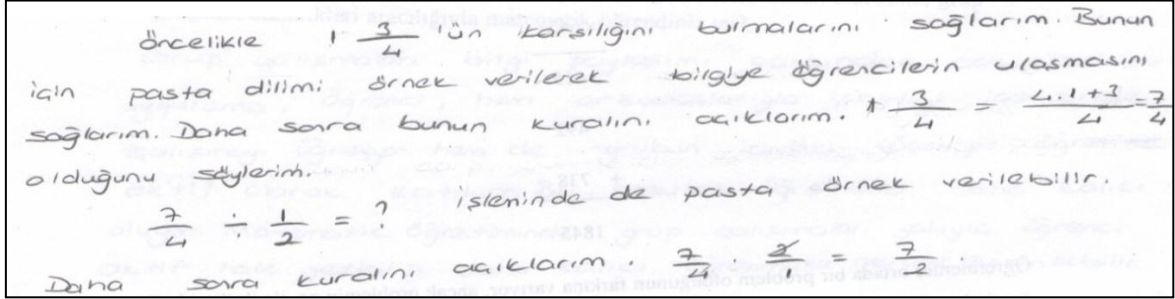 öncelikle 1 3/4 'ün karşılığını bulmalarını sağlarım. Bunun
için pasta dilimi örnek verilerek bilgiye öğrencilerin ulaşmasını
sağlarım. Daha sonra bunun kuralını açıklarım. 1 3/4 = 4.1+3/4 = 7/4
olduğunu söylerim.
7/4 ÷ 1/2 = ? işleminde de pasta örnek verilebilir.
Daha sonra kuralını açıklarım. 7/4 . 2/1 = 7/2.